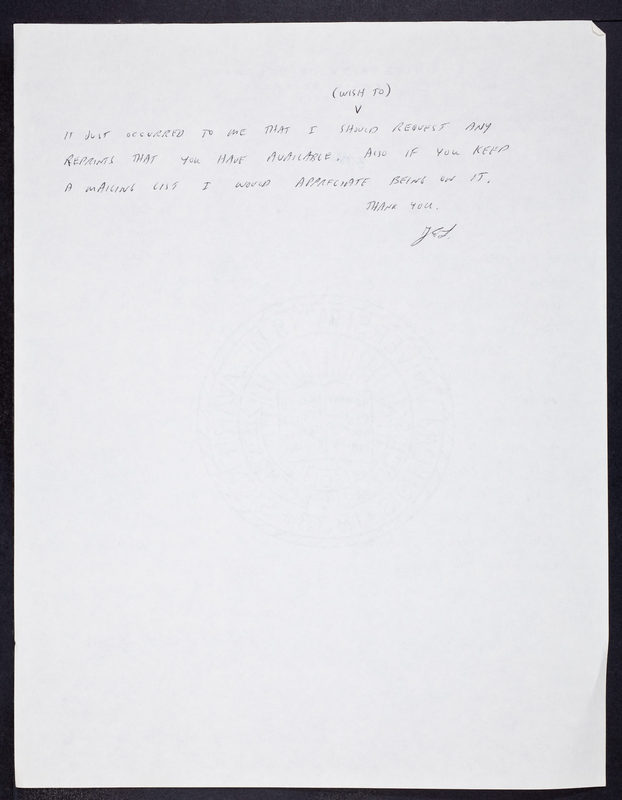 (WISH TO)
V
IT JUST OCCURRED TO ME THAT I SHOULD REQUEST ANY
REPRINTS THAT YOU HAVE AVAILABLE. ALSO IF YOU KEEP
A MAILING LIST I WOULD APPRECIATE BEING ON IT.
THANK YOU.